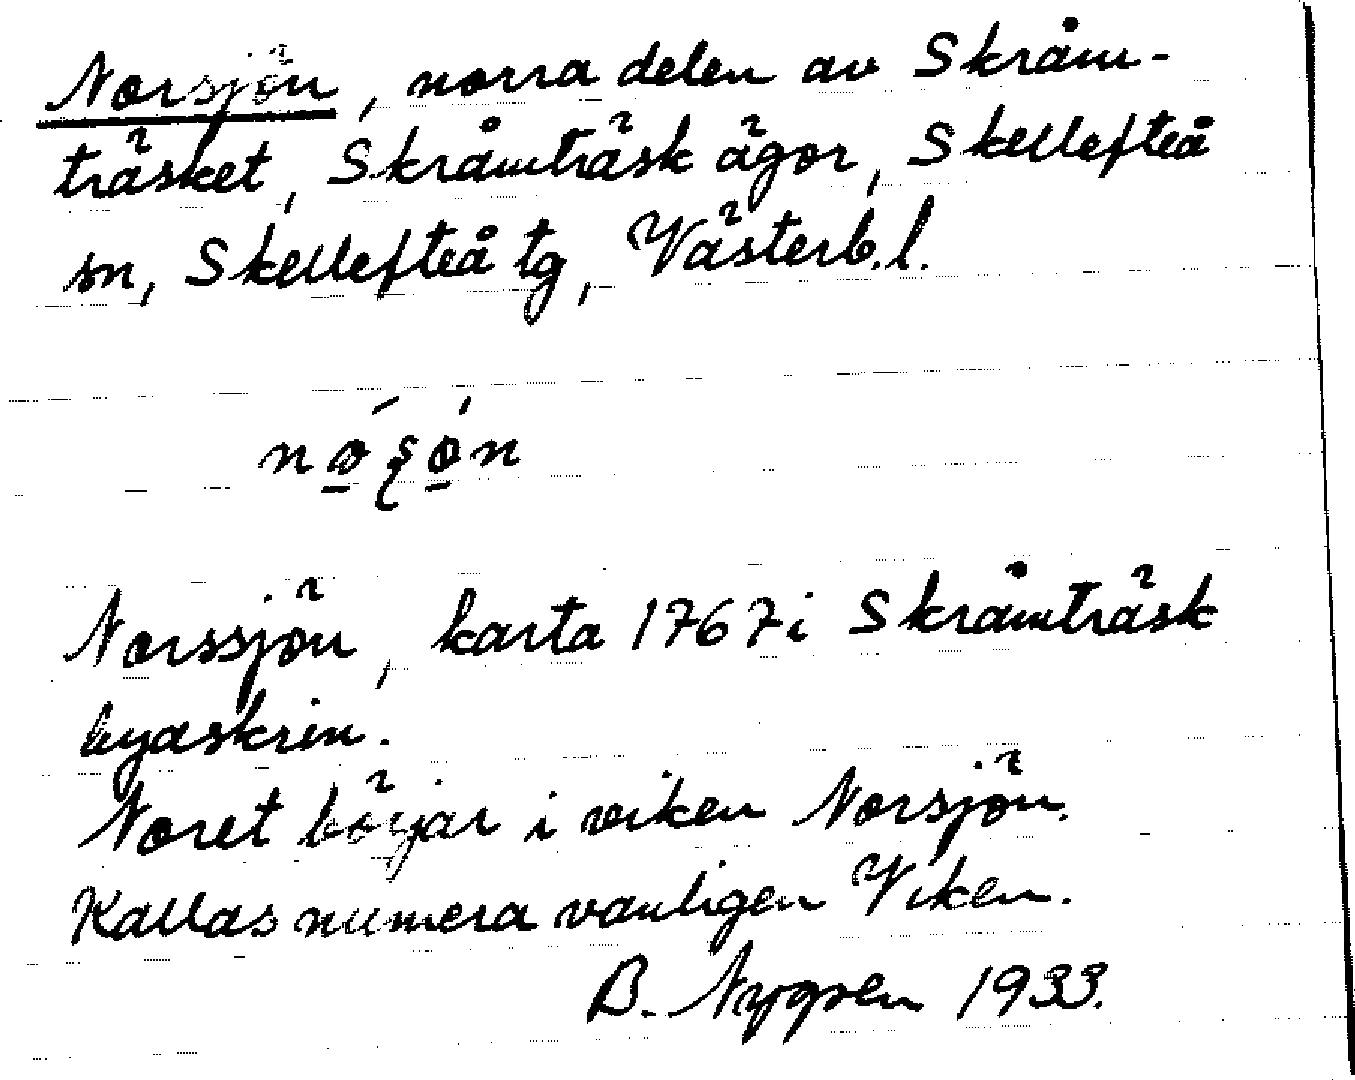 Norsjön, norra delen av Skråm-
träsket, Skråmträsk ägor, Skellefteå
sn, Skellefteå tg, Västerb.l.
Norssjön, karta 1767 i Skråmträsk
byaskrin.
Noret börjar i viken Norsjön.
Kallas numera vanligen Viken.
B. Nygren 1933.